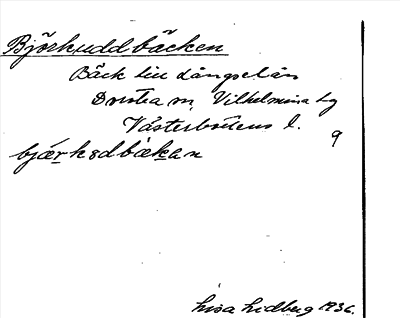 Björkuddbäcken
Bäck till Ångselån
Dorotea sn, Vilhelmina tg
Västerbottens l.
9
bjærksdbækan
Lisa Lidberg 1936.